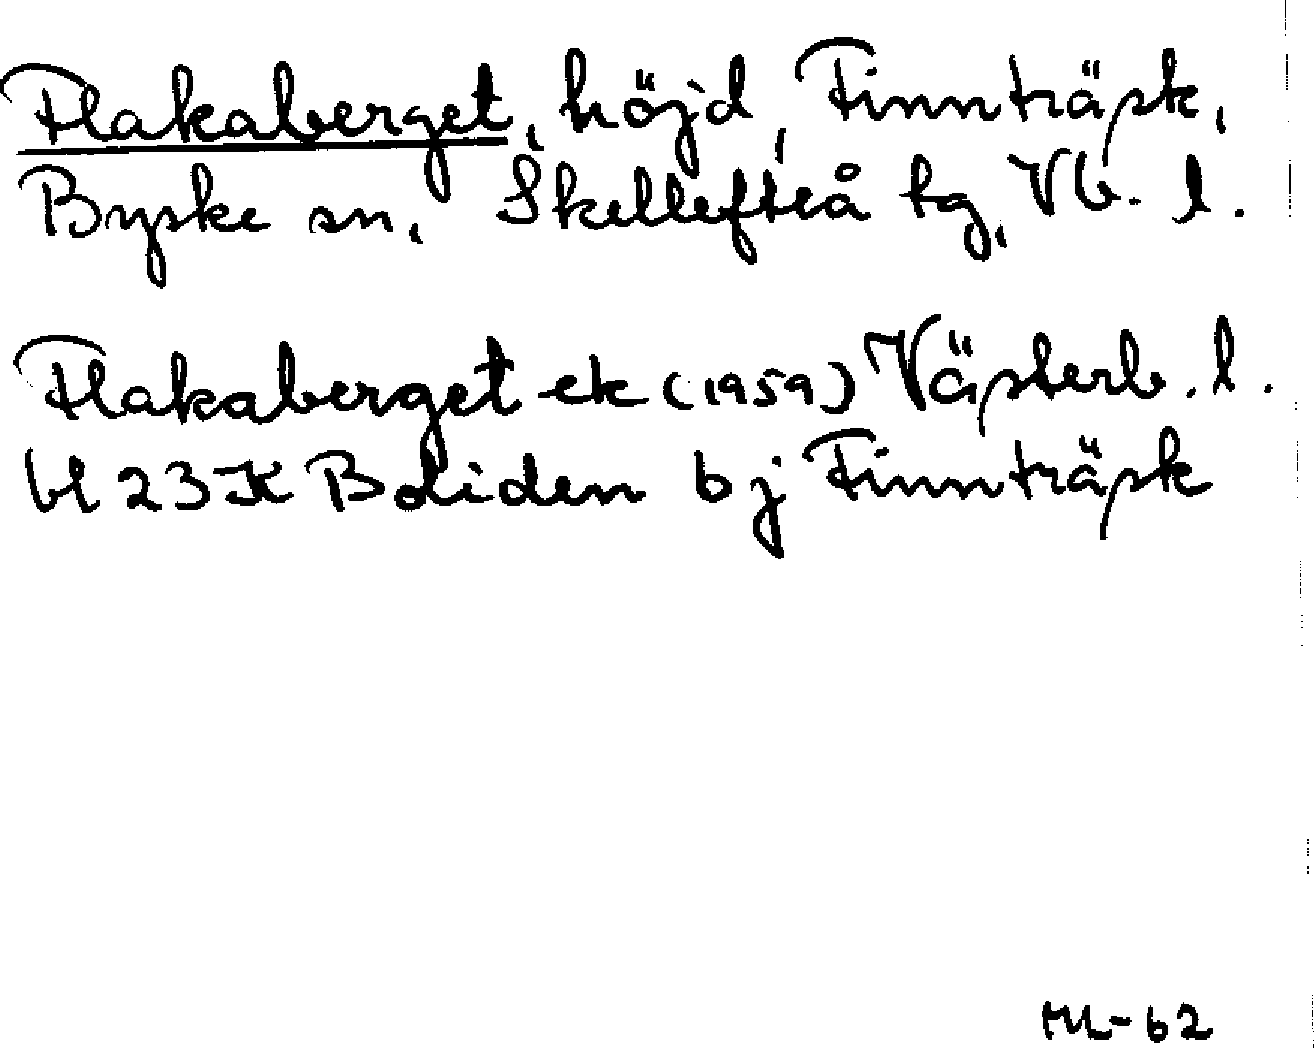 Flakaberget, höjd, Finnträsk,
Byske sn, Skellefteå tg, Vb. l.
Flakaberget ek (1959) Västerb. l.
bl 23 K Boliden bj Finnträsk
ML-62